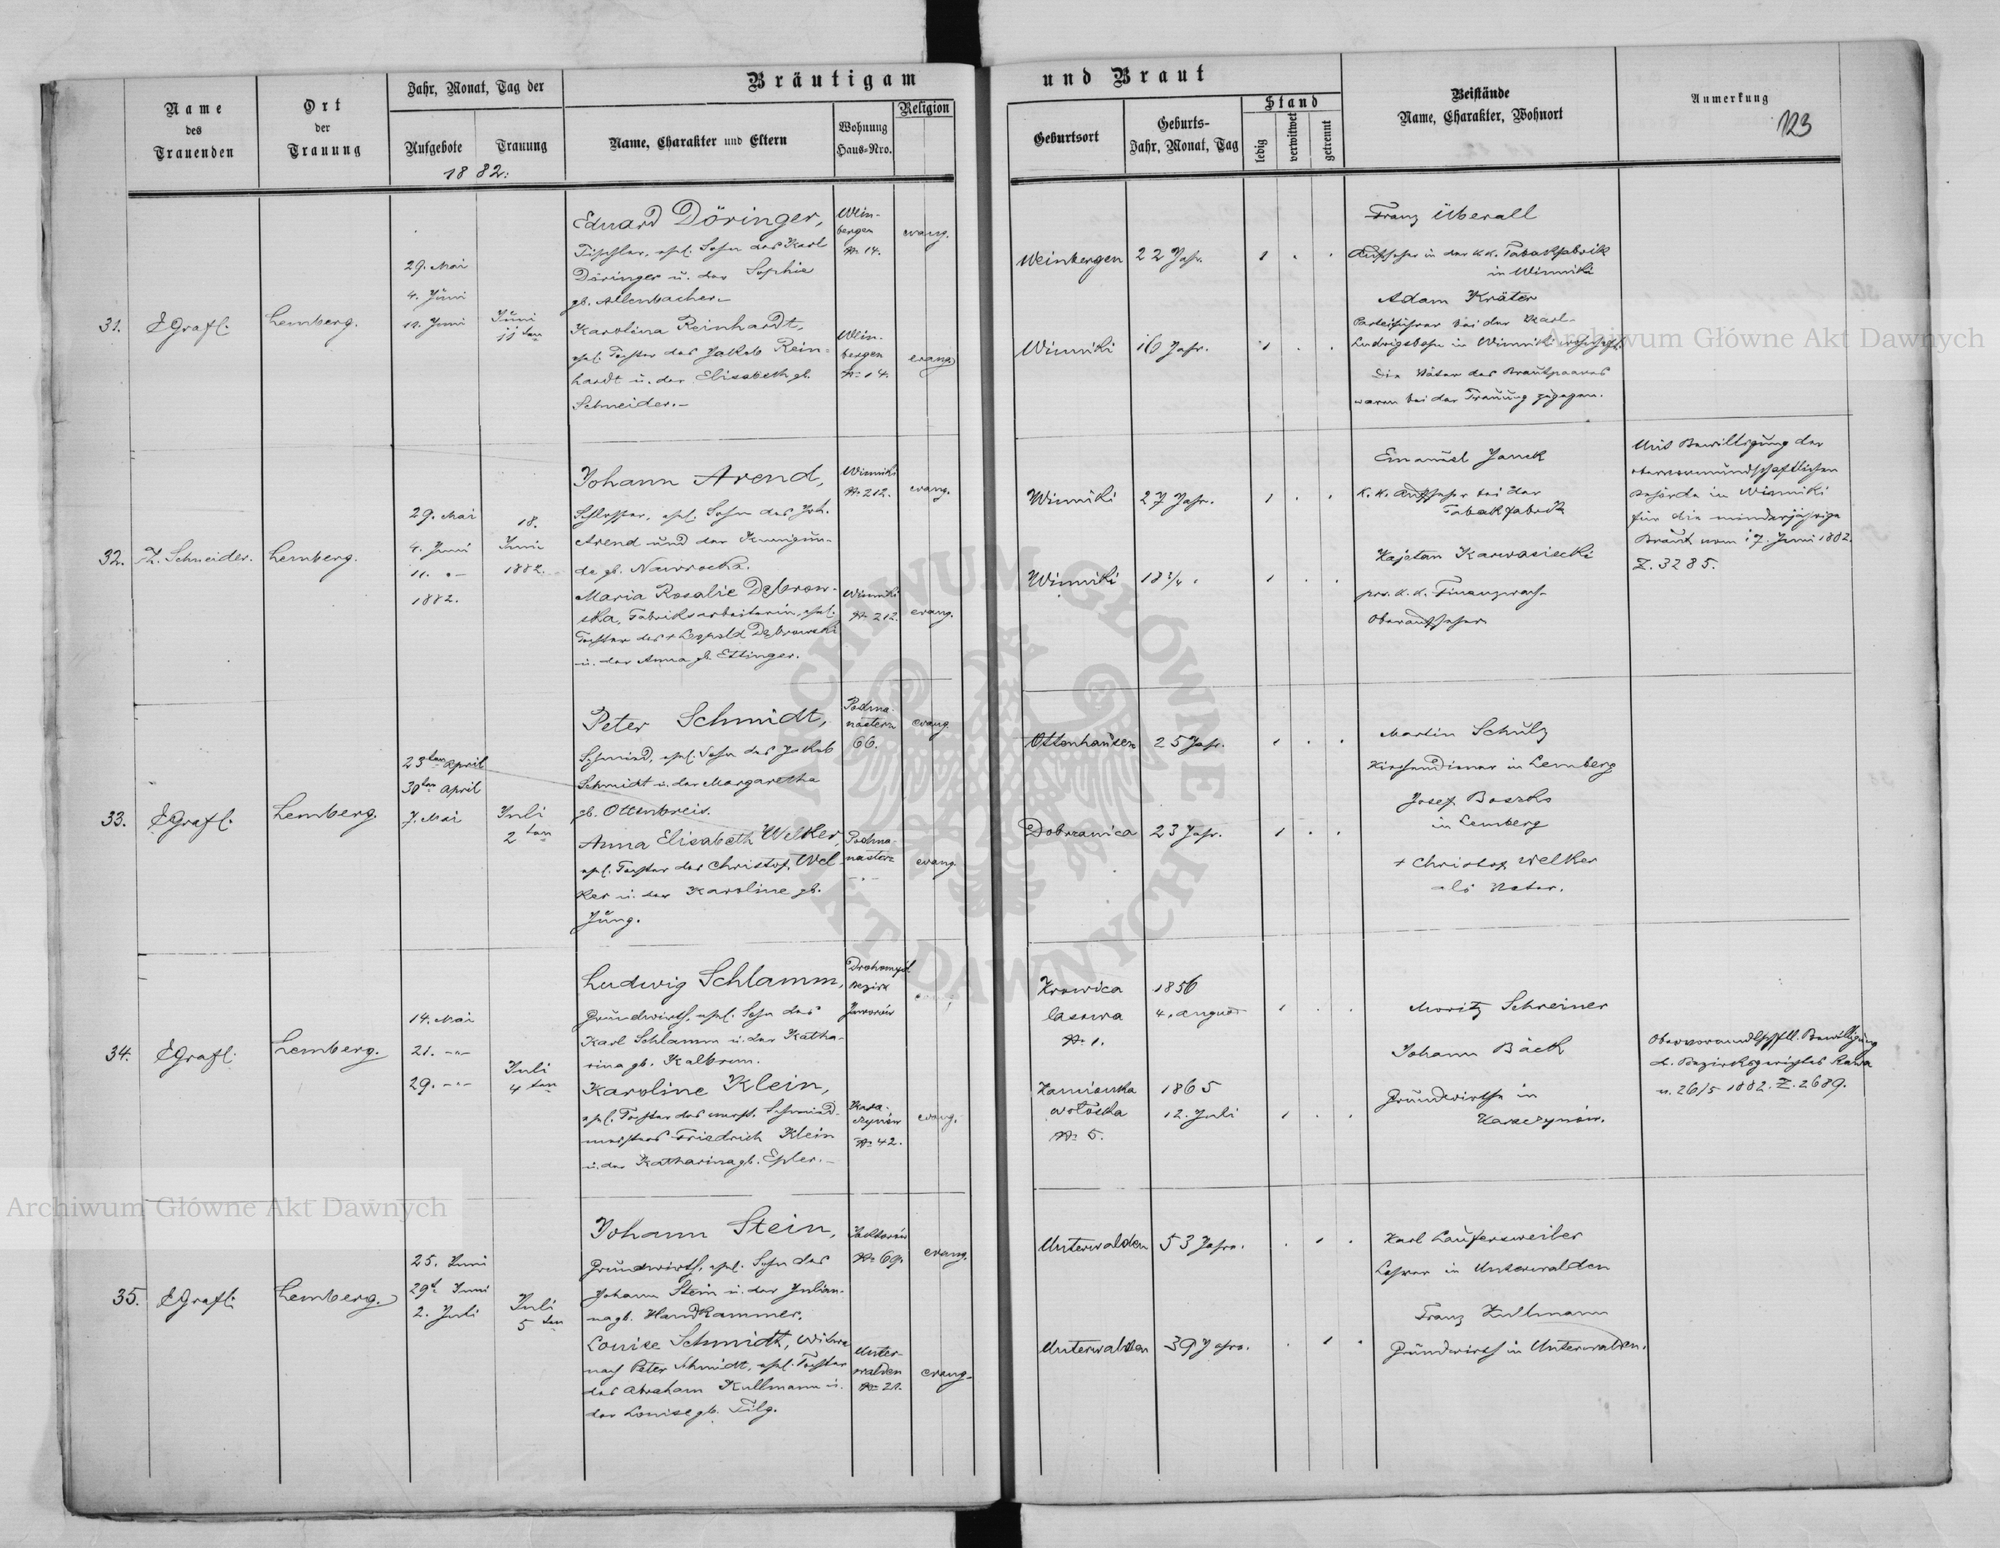 Bräutigam und Braut
Name
des
Trauenden
Ort
der
Trauung
Jahr, Monat, Tag der
Aufgebote
Trauung
1882.
Name, Charakter und Eltern
Wohnung
Haus-Nro.
Religion
Geburtsort
Geburts-
Jahr, Monat, Tag
Stand
ledig
verwitwet
getrennt
Beistände
Name, Charakter, Wohnort
Anmerkung
123
31.
Lemberg.
29. Mai
4. Juni
11. Juni
Juni
11 ten
Eduard Döringer,
Tischler, ehel. Sohn des Karl
Döringer u. der Sophie
gb. Allenbacher.
Karolina Reinhardt,
ehel. Tochter des Jakob Rein-
hardt u. der Elisabeth gb.
Schneider.
Wein-
bergen
No 14.
evang.
Wein-
bergen
No 14.
evang.
Weinbergen
22 Jahr.
Winniki
Jahr.
Franz Überall
Aufseher in der k.k. Tabakfabrik
in Winniki
Adam Kräter
bei der Karl-
Ludwigsbahn in Winniki wohnhaft.
Die Väter des Brautpaares
waren bei der Trauung zugegen.
32.
Schneider.
Lemberg.
29. Mai
4. Juni
11. "
1882.
18.
Juni
1882.
Johann Arend,
Schlosser, ehel. Sohn des Joh.
Arend und der Kunigun-
de gb. Nawrocka.
Maria Rosalie Dębrow-
ska, Fabriksarbeiterin, ehel.
Tochter des + Leopold Dębrowski
u. der Anna gb. Ettinger.
Winniki
No 212.
evang.
Winniki
No 212.
evang.
Winniki
27 Jahr.
Winniki
18
Emanuel Janek
k. k. Aufseher bei der
Tabakfabrik
Kajetan Karwasiecki
k. k. Finanzwach-
Oberaufseher
Mit Bewilligung der
obervormundschaftlichen
Behörde in Winniki
für die minderjährige
Braut vom 17. Juni 1882.
Z. 3285.
33.
Lemberg.
23ten April
30ten April
7. Mai
Juli
2 ten
Peter Schmidt,
Schmied, ehel. Sohn des Jakob
Schmidt u. der Margaretha
gb. Ottenbreit.
Anna Elisabeth Welker,
ehel. Tochter des Christof. Wel-
ker u. der Karoline gb.
Jung.
Podma-
nasterz
66.
evang.
Podma-
nasterz
evang.
Ottenhausen
25 Jahr.
Dobrzanica
23 Jahr.
Martin Schulz
Kirchendiener in Lemberg
Josef
in Lemberg
+ Christof Welker
als Vater.
34.
Lemberg.
14. Mai
21. -"-
29. -"-
Juli
4 ten
Ludwig Schlamm,
Grundwirth, ehel. Sohn des
Karl Schlamm u. der Katha-
rina gb. Kalbrun.
Karoline Klein,
ehel. Tochter des verst. Schmied-
meisters Friedrich Klein
u. der Katharina gb. Epler.
Drohomyśl
Bezirk
Jaworów
No 42.
evang.
Krowica
lasowa
No 1.
1856
4. August
Kamionka
wołoska
No 5.
1865
12. Juli
Moritz Schreiner
Johann Bäck
Grundwirthe in
Obervormundschftl. Bewilligung
d. Bezirksgerichtes Rawa
v. 26/5 1882. Z. 2689.
35.
Lemberg.
25. Juni
29t Juni
2. Juli
Juli
5 ten
Johann Stein,
Grundwirth, ehel. Sohn des
Johann Stein u. der Julian-
na gb. Handkammer.
Louise Schmidt, Witwe
nach Peter Schmidt, ehel. Tochter
des Abraham Kullmann u.
der Louise gb. Filg.
No 69.
evang.
Unter-
walden
No 21.
evang.
Unterwalden
53 Jahre.
Unterwalden
39 Jahre.
Karl Laufersweiler
Lehrer in Unterwalden
Franz Kullmann
Grundwirth in Unterwalden.
Archiwum Główne Akt Dawnych
ARCHIWUM GŁÓWNE AKT DAWNYCH
Archiwum Główne Akt Dawnych